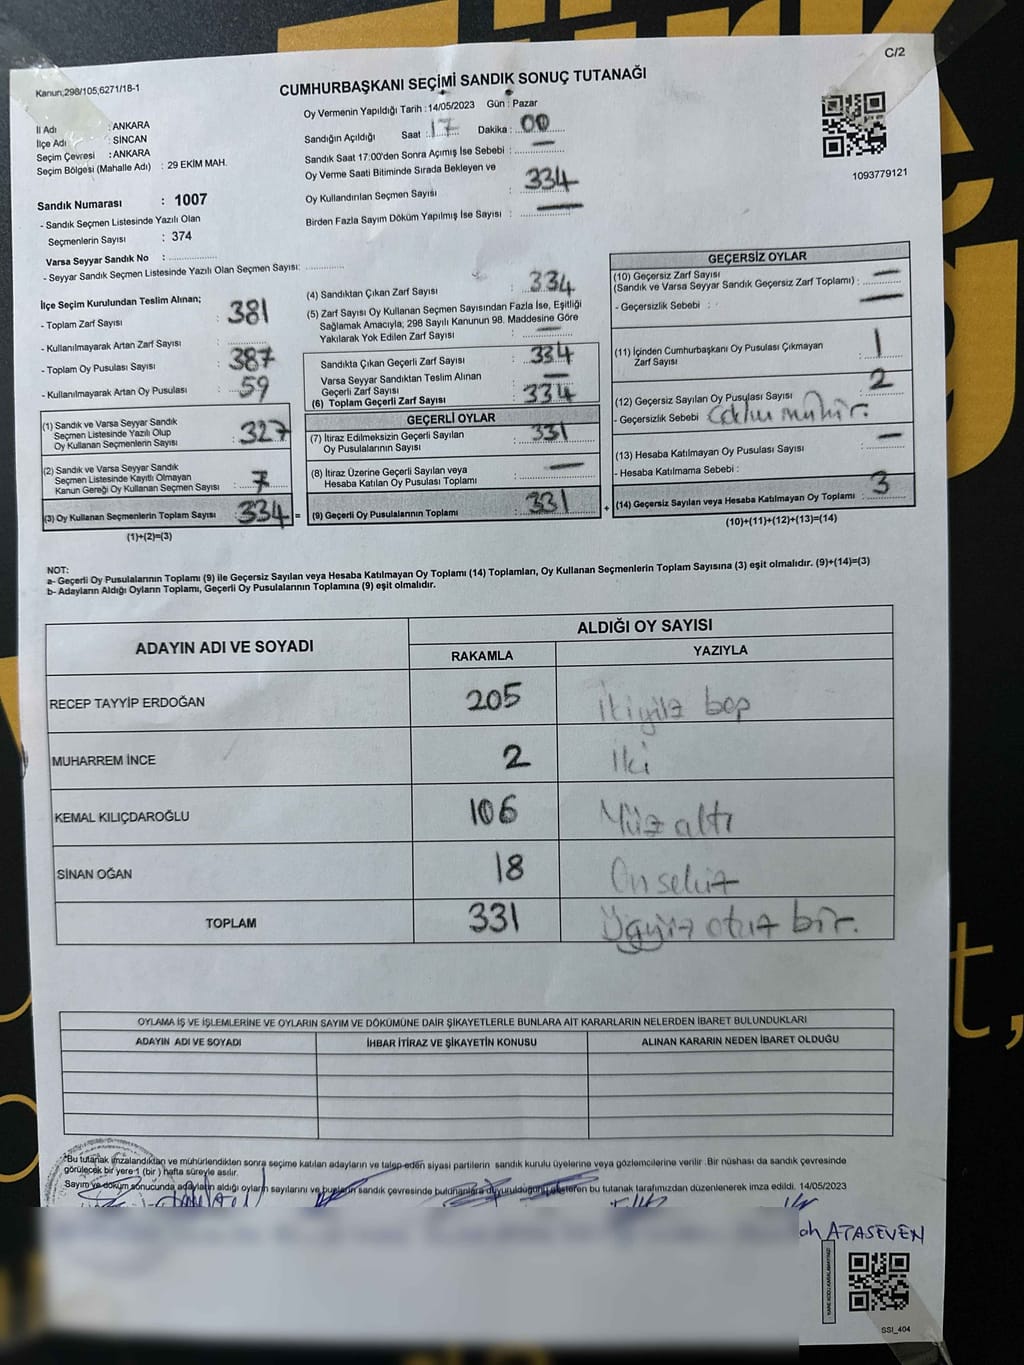 C/2
Kanun;298/105,6271/18-1
CUMHURBAŞKANI SEÇİMİ SANDIK SONUÇ TUTANAĞI
İl Adı : ANKARA
İlçe Adı : SİNCAN
Seçim Çevresi : ANKARA
Seçim Bölgesi (Mahalle Adı) : 29 EKİM MAH.
Sandık Numarası : 1007
- Sandık Seçmen Listesinde Yazılı Olan
Seçmenlerin Sayısı : 374
Varsa Seyyar Sandık No :
- Seyyar Sandık Seçmen Listesinde Yazılı Olan Seçmen Sayısı:
Oy Vermenin Yapıldığı Tarih : 14/05/2023 Gün : Pazar
Sandığın Açıldığı Saat : 17 Dakika : 00
Sandık Saat 17:00'den Sonra Açımış İse Sebebi : —
Oy Verme Saati Bitiminde Sırada Bekleyen ve
Oy Kullandırılan Seçmen Sayısı : 334
Birden Fazla Sayım Döküm Yapılmış İse Sayısı : —
1093779121
İlçe Seçim Kurulundan Teslim Alınan;
- Toplam Zarf Sayısı : 381
- Kullanılmayarak Artan Zarf Sayısı :
- Toplam Oy Pusulası Sayısı : 387
- Kullanılmayarak Artan Oy Pusulası : 59
(1) Sandık ve Varsa Seyyar Sandık
Seçmen Listesinde Yazılı Olup
Oy Kullanan Seçmenlerin Sayısı : 327
(2) Sandık ve Varsa Seyyar Sandık
Seçmen Listesinde Kayıtlı Olmayan
Kanun Gereği Oy Kullanan Seçmen Sayısı : 7
(3) Oy Kullanan Seçmenlerin Toplam Sayısı 334 =
(1)+(2)=(3)
(4) Sandıktan Çıkan Zarf Sayısı : 334
(5) Zarf Sayısı Oy Kullanan Seçmen Sayısından Fazla İse, Eşitliği
Sağlamak Amacıyla; 298 Sayılı Kanunun 98. Maddesine Göre
Yakılarak Yok Edilen Zarf Sayısı : —
Sandıkta Çıkan Geçerli Zarf Sayısı : 334
Varsa Seyyar Sandıktan Teslim Alınan
Geçerli Zarf Sayısı : —
(6) Toplam Geçerli Zarf Sayısı : 334
GEÇERLİ OYLAR
(7) İtiraz Edilmeksizin Geçerli Sayılan
Oy Pusulasının Sayısı : 331
(8) İtiraz Üzerine Geçerli Sayılan veya
Hesaba Katılan Oy Pusulası Toplamı : —
(9) Geçerli Oy Pusulalarının Toplamı : 331 +
GEÇERSİZ OYLAR
(10) Geçersiz Zarf Sayısı
(Sandık ve Varsa Seyyar Sandık Geçersiz Zarf Toplamı) : —
- Geçersizlik Sebebi : —
(11) İçinden Cumhurbaşkanı Oy Pusulası Çıkmayan
Zarf Sayısı : 1
(12) Geçersiz Sayılan Oy Pusulası Sayısı : 2
- Geçersizlik Sebebi mühür.
(13) Hesaba Katılmayan Oy Pusulası Sayısı : —
- Hesaba Katılmama Sebebi :
(14) Geçersiz Sayılan veya Hesaba Katılmayan Oy Toplamı : 3
(10)+(11)+(12)+(13)=(14)
NOT:
a- Geçerli Oy Pusulalarının Toplamı (9) ile Geçersiz Sayılan veya Hesaba Katılmayan Oy Toplamı (14) Toplamları, Oy Kullanan Seçmenlerin Toplam Sayısına (3) eşit olmalıdır. (9)+(14)=(3)
b- Adayların Aldığı Oyların Toplamı, Geçerli Oy Pusulalarının Toplamına (9) eşit olmalıdır.
ADAYIN ADI VE SOYADI
ALDIĞI OY SAYISI
RAKAMLA YAZIYLA
RECEP TAYYİP ERDOĞAN 205 ikiyüz beş
MUHARREM İNCE 2 iki
KEMAL KILIÇDAROĞLU 106 Yüz altı
SİNAN OĞAN 18 On sekiz
TOPLAM 331 Üçyüz otuz bir.
OYLAMA İŞ VE İŞLEMLERİNE VE OYLARIN SAYIM VE DÖKÜMÜNE DAİR ŞİKAYETLERLE BUNLARA AİT KARARLARIN NELERDEN İBARET BULUNDUKLARI
ADAYIN ADI VE SOYADI İHBAR İTİRAZ VE ŞİKAYETİN KONUSU ALINAN KARARIN NEDEN İBARET OLDUĞU
*Bu tutanak imzalandıktan ve mühürlendikten sonra seçime katılan adayların ve talep eden siyasi partilerin sandık kurulu üyelerine veya gözlemcilerine verilir .Bir nüshası da sandık çevresinde
görülecek bir yere 1 (bir ) hafta süreyle asılır.
Sayım ve döküm sonucunda adayların aldığı oyların sayılarını ve bunların sandık çevresinde bulunanlara duyurulduğunu gösteren bu tutanak tarafımızdan düzenlenerek imza edildi. 14/05/2023
ah ATASEVEN
SSI_404